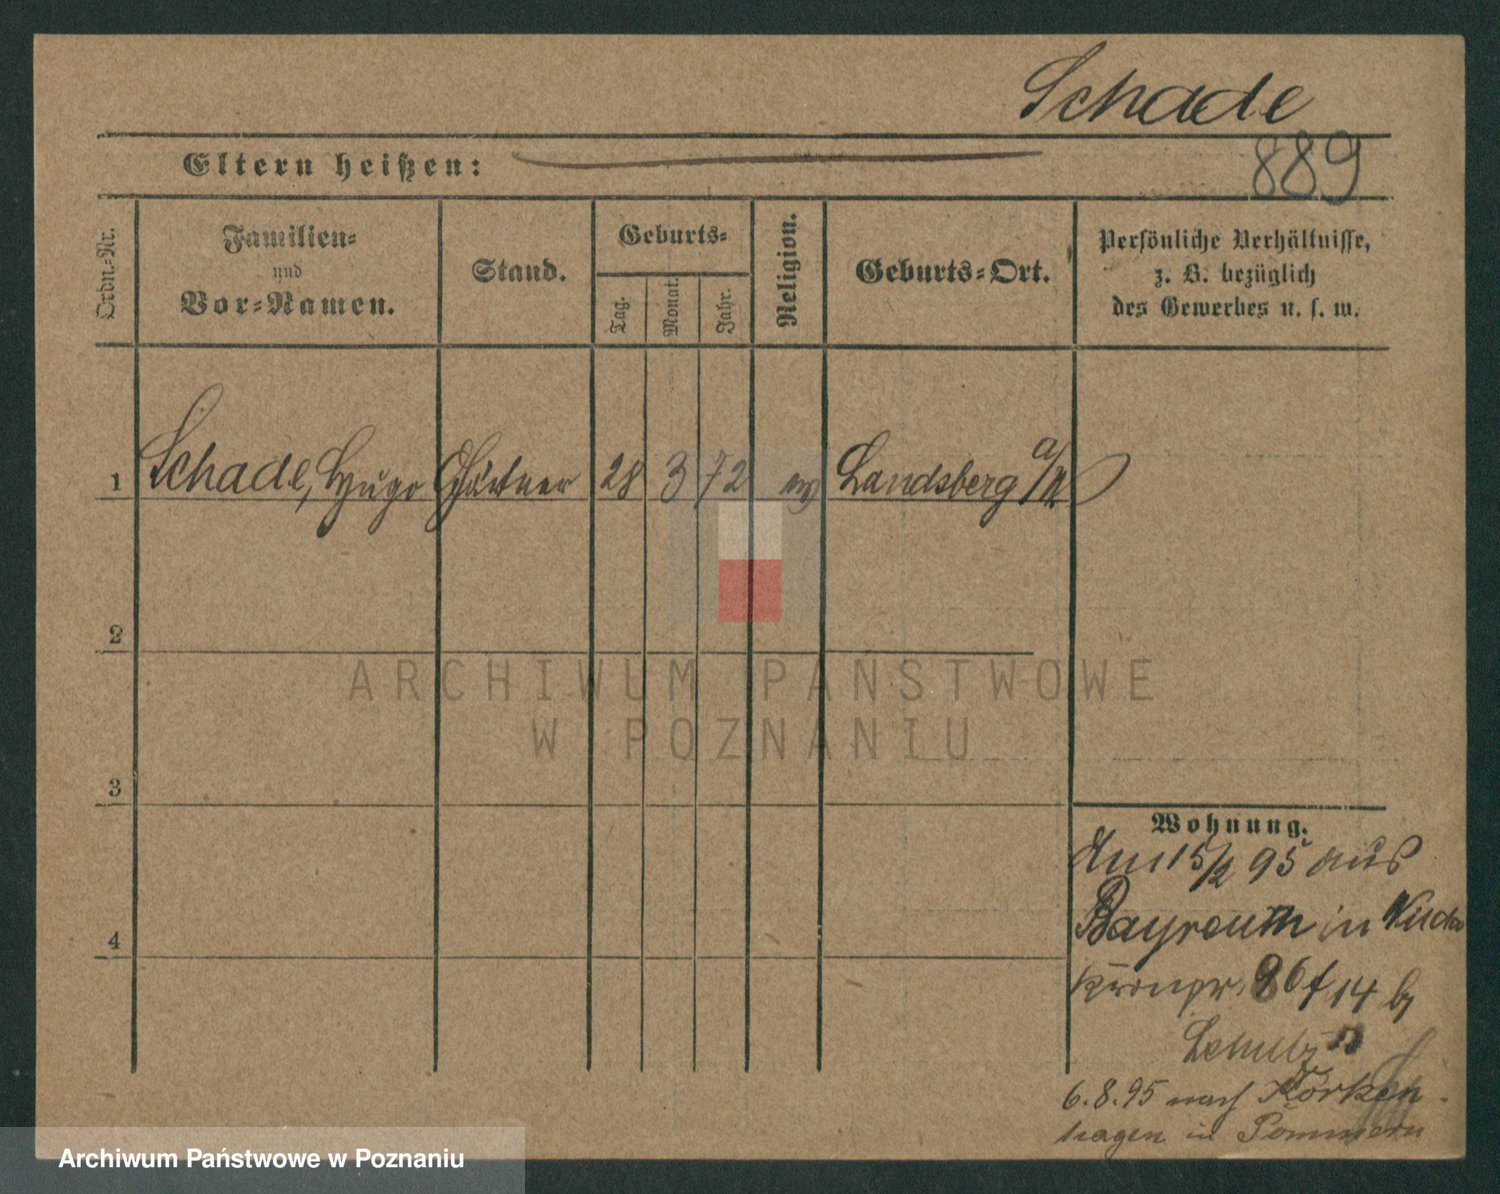 Schade
Eltern heißen:
889
Ordn.-Nr.
Familien-
und
Vor-Namen.
Stand.
Geburts-
Tag.
Monat.
Jahr.
Religion.
Geburts-Ort.
Persönliche Verhältnisse,
z. B. bezüglich
des Gewerbes u. s. w.
1 Schade, Hugo Gärtner 28 3 72 ev Landsberg a/W
2
3
4
Wohnung.
Am 15/2 95 aus
Bayreuth in
Kronpr. 96 f 14 b
Schulz
6.8.95 nach
hagen in Pommern
ARCHIWUM PAŃSTWOWE
W POZNANIU
Archiwum Państwowe w Poznaniu